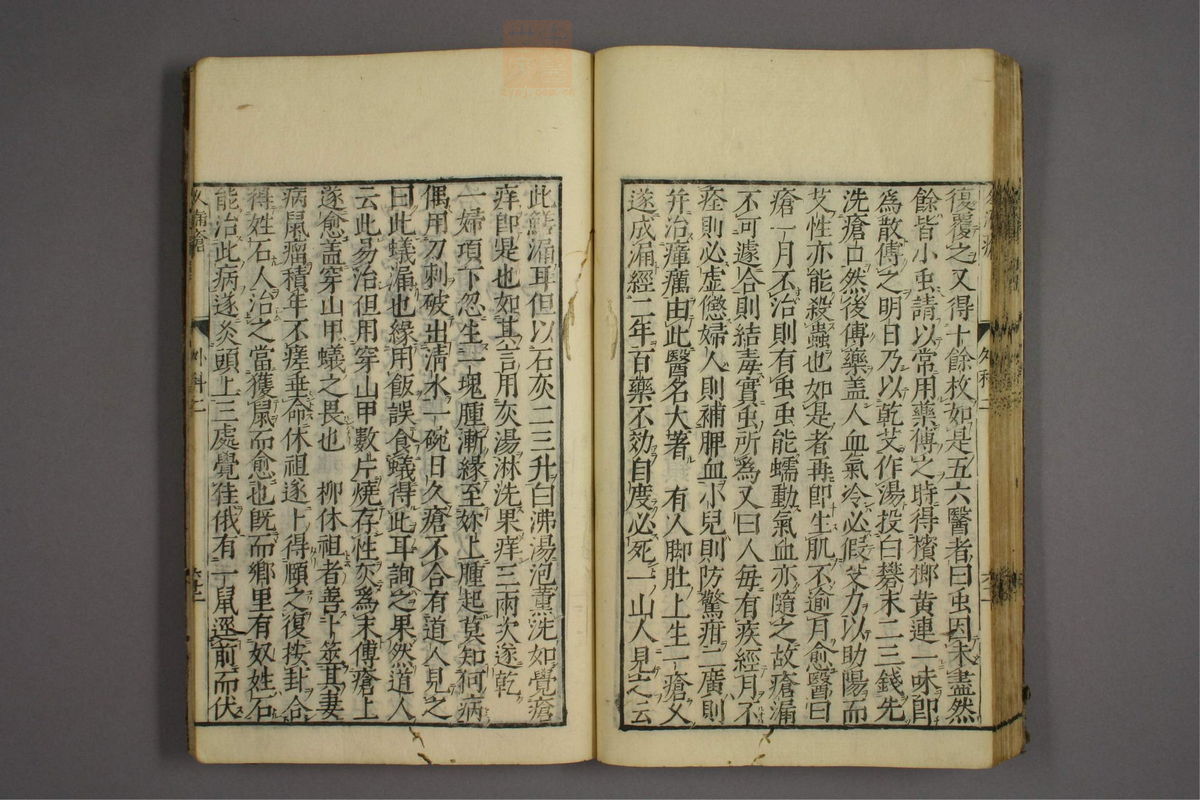 復覆之又得十餘枚如是五六醫者曰虫因未盡然
餘皆小虫請以常用藥傅之時得檳榔黃連二味即
為散傅之明日乃以乾艾作湯投白礬末二三錢先
洗瘡口然後傅藥盖人血氣冷必假艾力以助陽而
艾性亦能殺蟲也如是者再即生肌不逾月愈醫曰
瘡一月不治則有虫虫能蠕動氣血亦隨之故瘡漏
不可遽合則結毒實虫所為又曰人每有疾經月不
痊則必虛憊婦人則補脾血小兒則防驚疳二廣則
并治瘴癘由此醫名大著 有人脚肚上生一瘡久
遂成漏經二年百藥不効自度必死一山人見之云
此鱔漏耳但以石灰二三升白沸湯泡薰洗如覺瘡
痒即是也如其言用灰湯淋洗果痒三兩次遂乾
一婦項下忽生一塊腫漸緣至妳上腫起莫知何病
偶用刀刺破出清水一碗日久瘡不合有道人見之
曰此蟻漏也緣用飯誤食蟻得此耳詢之果然道人
云此易治但用穿山甲數片燒存性灰為末傅瘡上
遂愈盖穿山甲蟻之畏也 柳休祖者善卜筮其妻
病鼠瘤積年不瘥垂命休祖遂卜得頤之復按卦合
得姓石人治之當獲鼠而愈也既而鄉里有奴姓石
能治此病遂灸頭上三處覺徃俄有一鼠逕前而伏
外科二